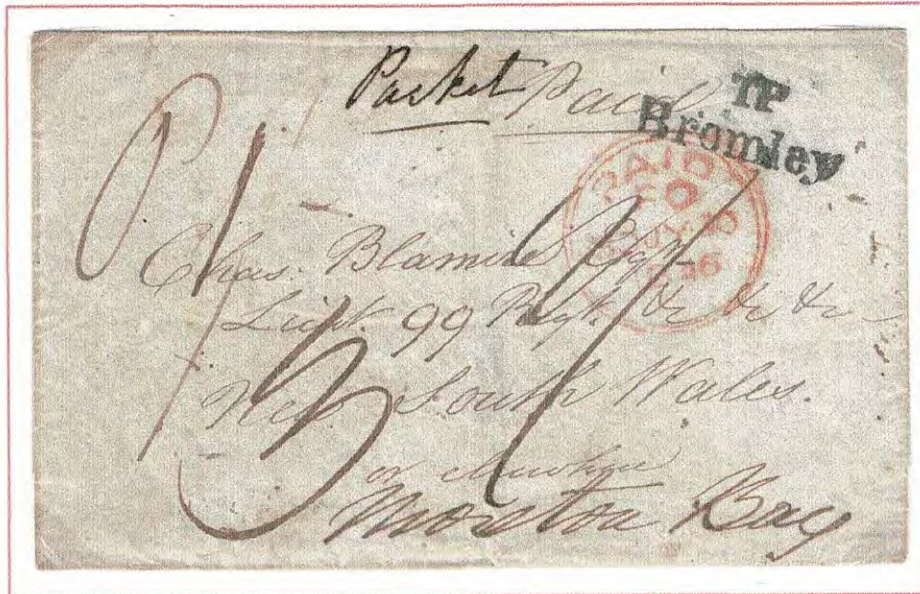 Packet Paid
TP
Bromley
PAID
JY 30
Chas. Blamire Esqr.
Lieut. 99 Regt. &c &c &c
New South Wales.
or elsewhere
Moreton Bay
P 1/
3/